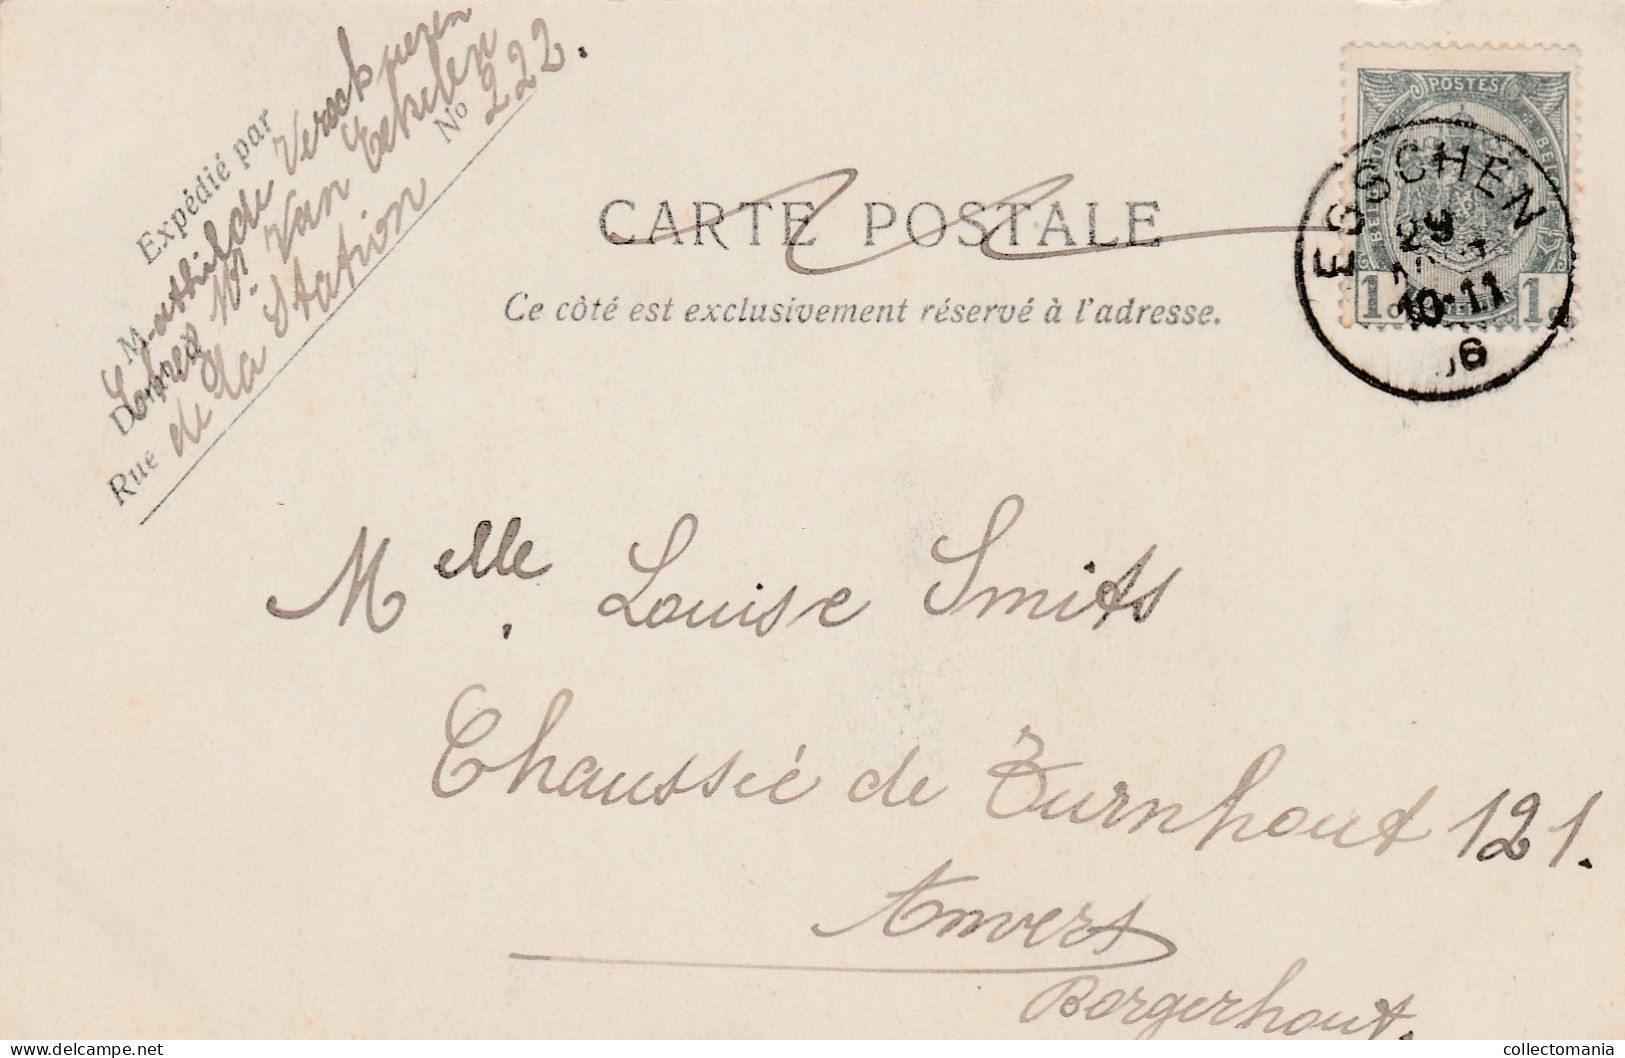 Expédié par
Mathilde
Chez Mr. Van
Rue de la Station No 222.
CARTE POSTALE
Ce côté est exclusivement réservé à l'adresse.
POSTES
1 1
ESSCHEN
29
10-11
06
Melle. Louise Smits
Chaussée de Turnhout 121.
Anvers
Borgerhout.
delcampe.net
collectomania